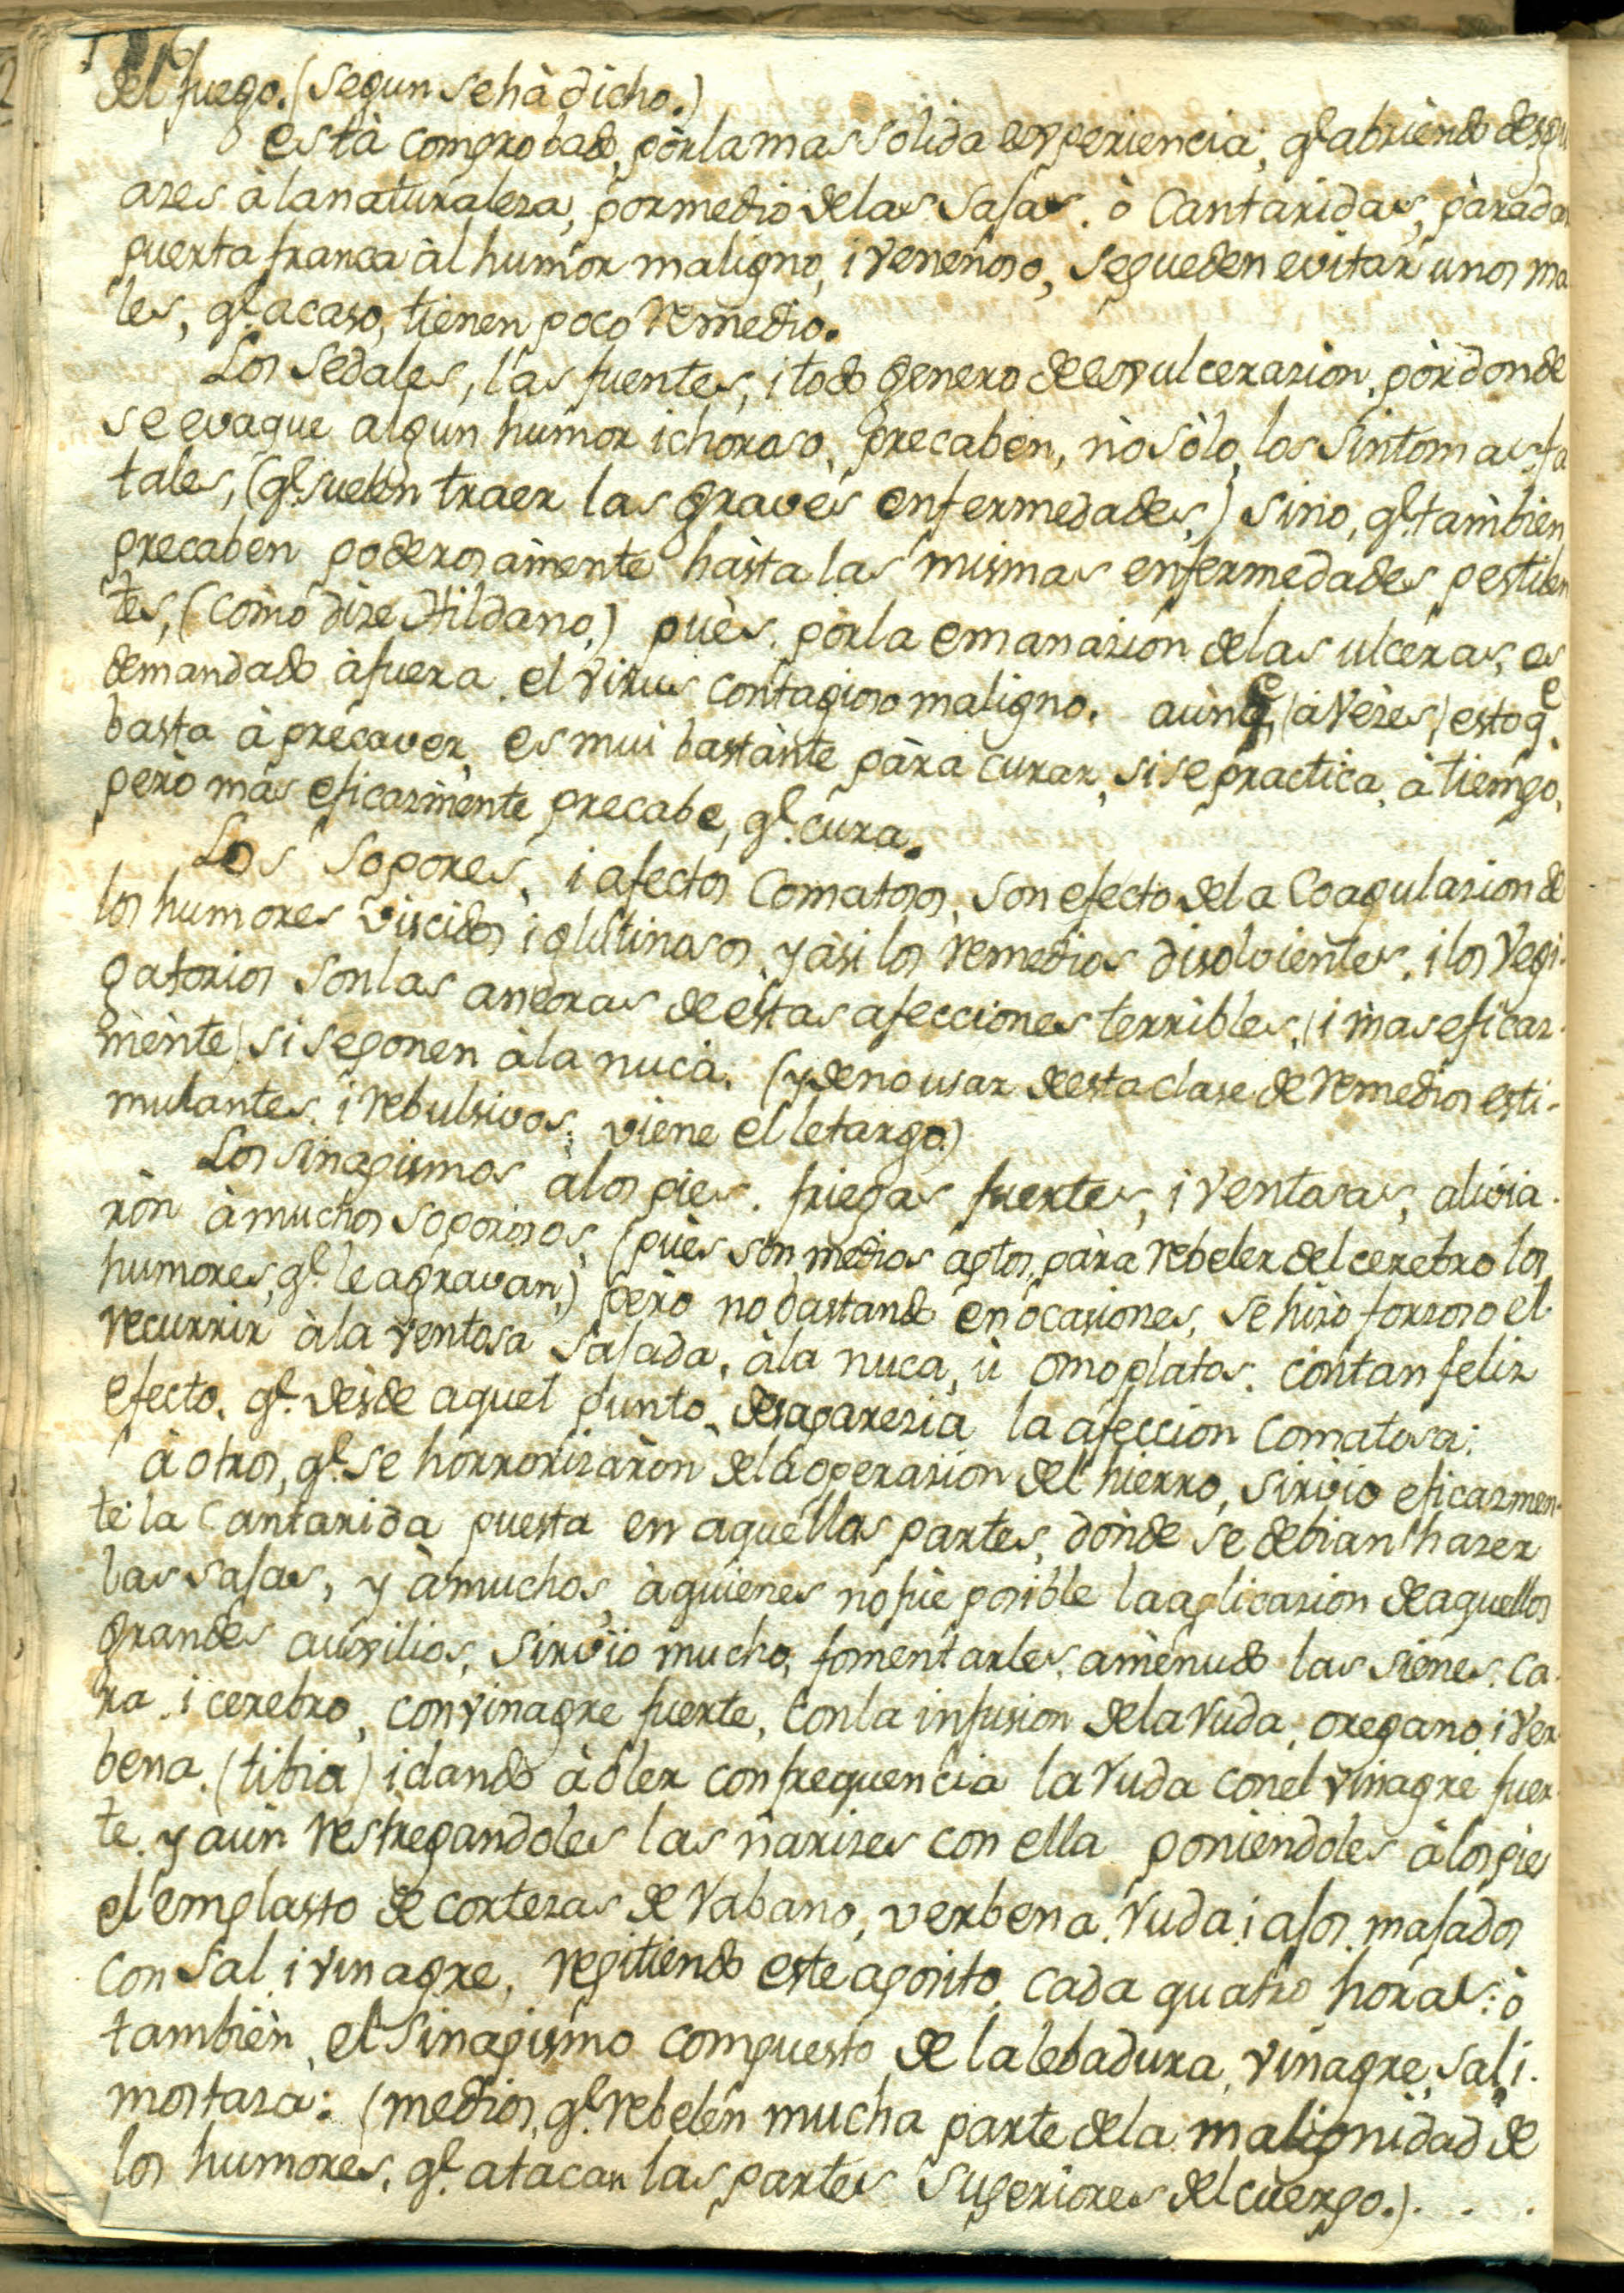 del fuego. (segun se hà dicho.)
està comprobado, pòr la mas solida experiencia, qe. abriendo desgu
azes à la naturaleza, por medio de las sajas. ò Cantáridas, pàra dar
puerta franca àl humor maligno, i venenoso, se pueden evitar unos ma
les, qe. acaso, tienen poco remedio.
Los sedales, las fuentes, i todo genero de exulcerazion, pòr donde
se evaque algun humor ichoroso, precaben, nò sòlo, los sintomas fa
tales, (qe. suelen traer las graves enfermedades,) sino, qe. tàmbien
precaben poderosamente hàsta las mismas enfermedades pestilen
tes, (como dize Hildano,) puès. pòr la emanazion de las ulceras, es
demandado àfuera. el virus contagioso maligno. aùnqe, (à vèzes,) esto qe.
basta à precaver, es mui bastànte pàra curar, si se practica, à tiempo,
però màs eficazmente precabe, qe. cura.
Los sopores, i afectos Comatosos, son efecto de la Coagulazion de
los humores viscidos i glutinosos, y àsi los remedios disolvientes. i los vegi-
gatorios son las ancoras de estas afecciones terribles, (i màs eficaz-
mènte) si se ponen à la nuca. (y de no usar de esta clase de remedios esti-
mulantes. i rebulsivos; viene el letargo.)
Los sinapismos à los pies. friegas fuertes, i ventosas, alivia-
ròn à muchos soporosos, (puès son medios aptos, pàra rebeler del cerebro los
humores, qe. le agravan,) però no bastando en ocasiones, se hizo forzoso el
recurrir à la ventosa sajada, à la nuca, ù omoplatos. con tan feliz
efecto. qe. desde aquel punto, desaparezia la afeccion comatosa:
à otros, qe. se horrorizaròn de la operazion del hierro, sirvio eficazmen-
te la Cantarida puesta en aquellas partes, dònde se debian hazer
las sajas, y à muchos, à quienes nò fuè posible la aplicazion de aquellos
grandes auxilios, sirviò mucho, fomentarles, amènudo las sienes, ca-
ra. i cerebro, con vinagre fuerte, con la infusion de la ruda, oregano, i ver-
bena. (tibia) i dando à oler con frequencia la ruda con el vinagre fuer-
te. y aùn restregandoles las narizes con ella poniendoles à los pies
el emplasto de cortezas de rabano, verbena, ruda i ajos. majados
con sal i vinagre, repitiendo este aposito, cada quatro horas: ò
tambièn, el sinapismo compuesto de la lebadura, vinagre, sal, i.
mostaza: (medios, qe. rebelen mucha parte de la malignidad de
los humores. qe. atacan las partes superiores del cuerpo.). . .